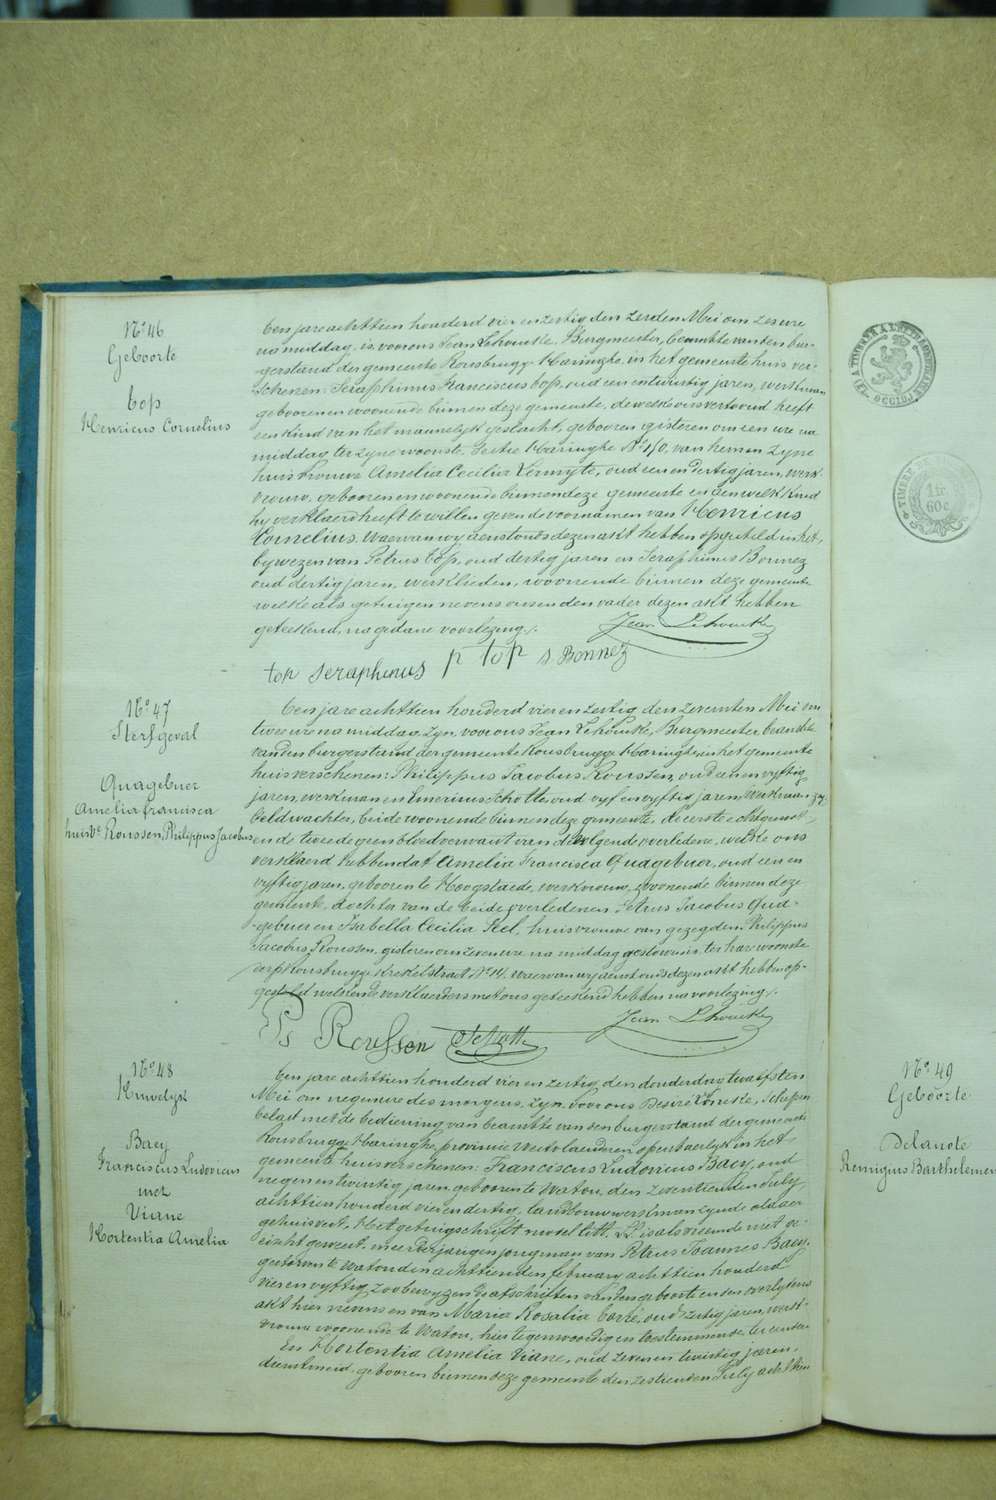 N° 46
Geboorte
Cop
Henricus Cornelius
Een jare achttien honderd vier en zestig den zesden Mei om zes ure
na middag, is voor ons Jean Lehoucke, Burgmeester, beambte van den bur-
gerstand der gemeente Rousbrugge Haringhe, in het gemeente huis ver-
schenen: Seraphinus Franciscus Cop, oud een en twintig jaren, werkman
geboren en woonende binnen deze gemeente, dewelke ons vertoond heeft
een kind van het mannelyk geslacht, gebooren gisteren om een ure na
middag ter zyne woonste, Sectie Haringhe N° 110, van hem en zyne
huisvrouwe Amelia Cecilia Vermyte, oud een en dertig jaren, werk-
vrouw, gebooren en woonende binnen deze gemeente en aen welk kind
hy verklaerd heeft te willen geven de voornamen van Henricus
Cornelius. Waervan wy aenstonds dezen akt hebben opgesteld in het
bywezen van Petrus Cop, oud dertig jaren en Seraphinus Bonnez
oud dertig jaren, werklieden, woonende binnen deze gemeente
welke als getuigen nevens ons en den vader dezen akt hebben
geteekend, na gedane voorlezing./.
Jean Lehoucke
top seraphinus p top s. Bonnez
N° 47
Sterfgeval
Quagebuer
Amelia francisca
huisve Roussen, Philippus Jacobus
Een jare achttien honderd vier en zestig den zevensten Mei om
twee ure na middag, zyn voor ons Jean Lehoucke, Burgmeester beambte
van den burgerstand der gemeente Rousbrugge Haringhe, in het gemeente
huis verschenen: Philippus Jacobus Roussen, oud een en vyftig
jaren, werkman en Emerinus Schotte, oud vyf en vyftig jaren, Werkman zy
veldwachter, beide woonende binnen deze gemeente, de eerste echtgenoot
en de tweede geen bloedverwant van de volgende overledene, welke ons
verklaerd hebben dat Amelia Francisca Quagebuer, oud een en
vyftig jaren, gebooren te Hoogstaede, werkvrouw, woonende binnen deze
gemeente, dochter van de beide overledenen Petrus Jacobus Qua-
gebuer en Isabella Cecilia Hel, huisvrouwe van gezegden Philippus
Jacobus Roussen, gisteren om zeven ure na middag gestorven is, ter haer woonste
dorp Rousbrugge Krekelstraet N° 14. Waervan wy aenstonds dezen akt hebben op-
gesteld welken de verklaerders met ons geteekend hebben na voorlezing./.
Jean Lehoucke
Ph Roussen Schotte
N° 48
Huwelyk
Baey
Franciscus Ludovicus
met
Viane
Hortentia Amelia
Een jare achttien honderd vier en zestig, den donderdag twaelfsten
Mei om negen ure des morgens, zyn voor ons Desiré Vereecke, Schepen
belast met de bediening van beambte van den burgerstand der gemeente
Rousbrugge Haringhe, provincie Westvlaenderen openbaerlyk in het
gemeente huis verschenen: Franciscus Ludovicus Baey, oud
negen en twintig jaren, gebooren te Watou, den zeventienden July
achttien honderd vier en dertig, landbouwwerkman zynde aldaer
gehuisvest, Het getuigschrift model litt. is als vreemde met ge-
eischt geweest, meerderjarigen jongman van Petrus Joannes Baey,
gestorven te Watou den achttienden february achttien honderd
vier en vyftig, zoo bewyzen de afschriften van den geboorte en den overlydens
akt hier nevens en van Maria Rosalia Corté, oud zestig jaren, werk-
vrouw woonende te Watou, hier tegenwoordig en toestemmende, ter eender
En Hortentia Amelia Viane, oud zeven en twintig jaren,
dienstmeid, gebooren binnen deze gemeente den zestienden July achttien
TIMBRE A L'EXTRAORDINAIRE
TIMBRE
1 fr
60 c
N° 49
Geboorte
Delanote
Remigius Barthelemen